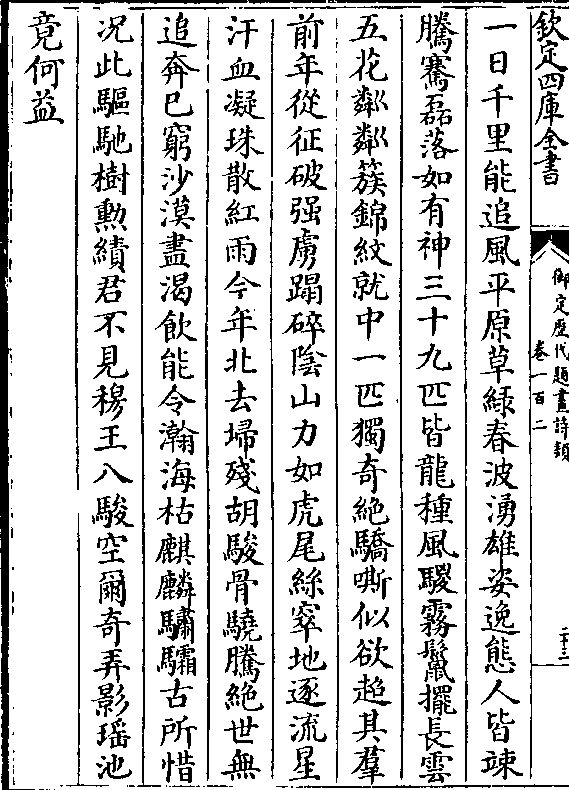 欽定四庫全書
御定歴代題畫詩類
卷一百二
二十三
一日千里能追風平原草緑春波湧雄姿逸態人皆竦
騰騫磊落如有神三十九匹皆龍種風騣霧鬛擺長雲
五花粼粼簇錦紋就中一匹獨奇絶驕嘶似欲超其羣
前年從征破强虜蹋碎陰山力如虎尾絲窣地逐流星
汗血凝珠散紅雨今年北去埽殘胡駿骨驍騰絶世無
追奔已窮沙漠盡渴飲能令瀚海枯麒麟驌驦古所惜
况此驅馳樹勲績君不見穆王八駿空爾奇弄影瑶池
竟何益